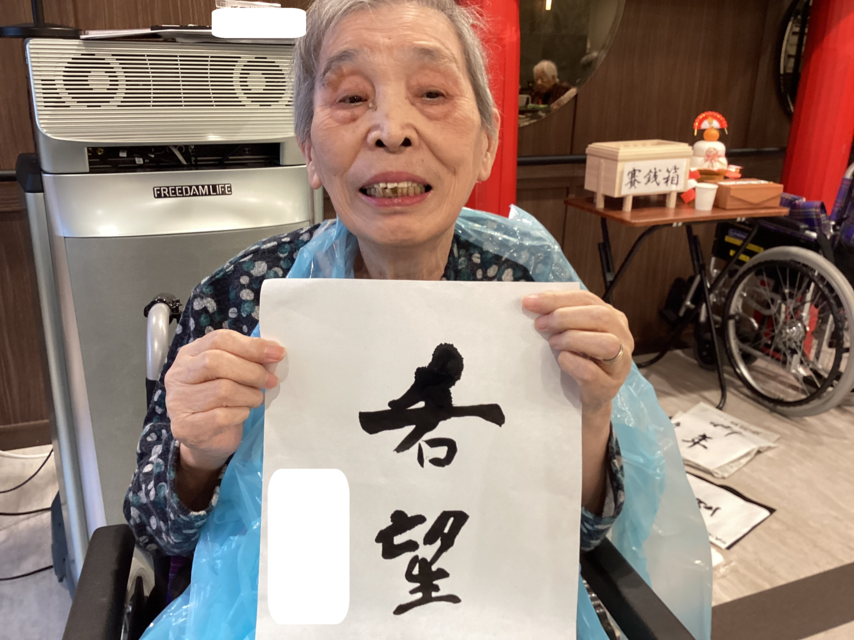 FREEDAM LIFE
賽銭箱
希
望